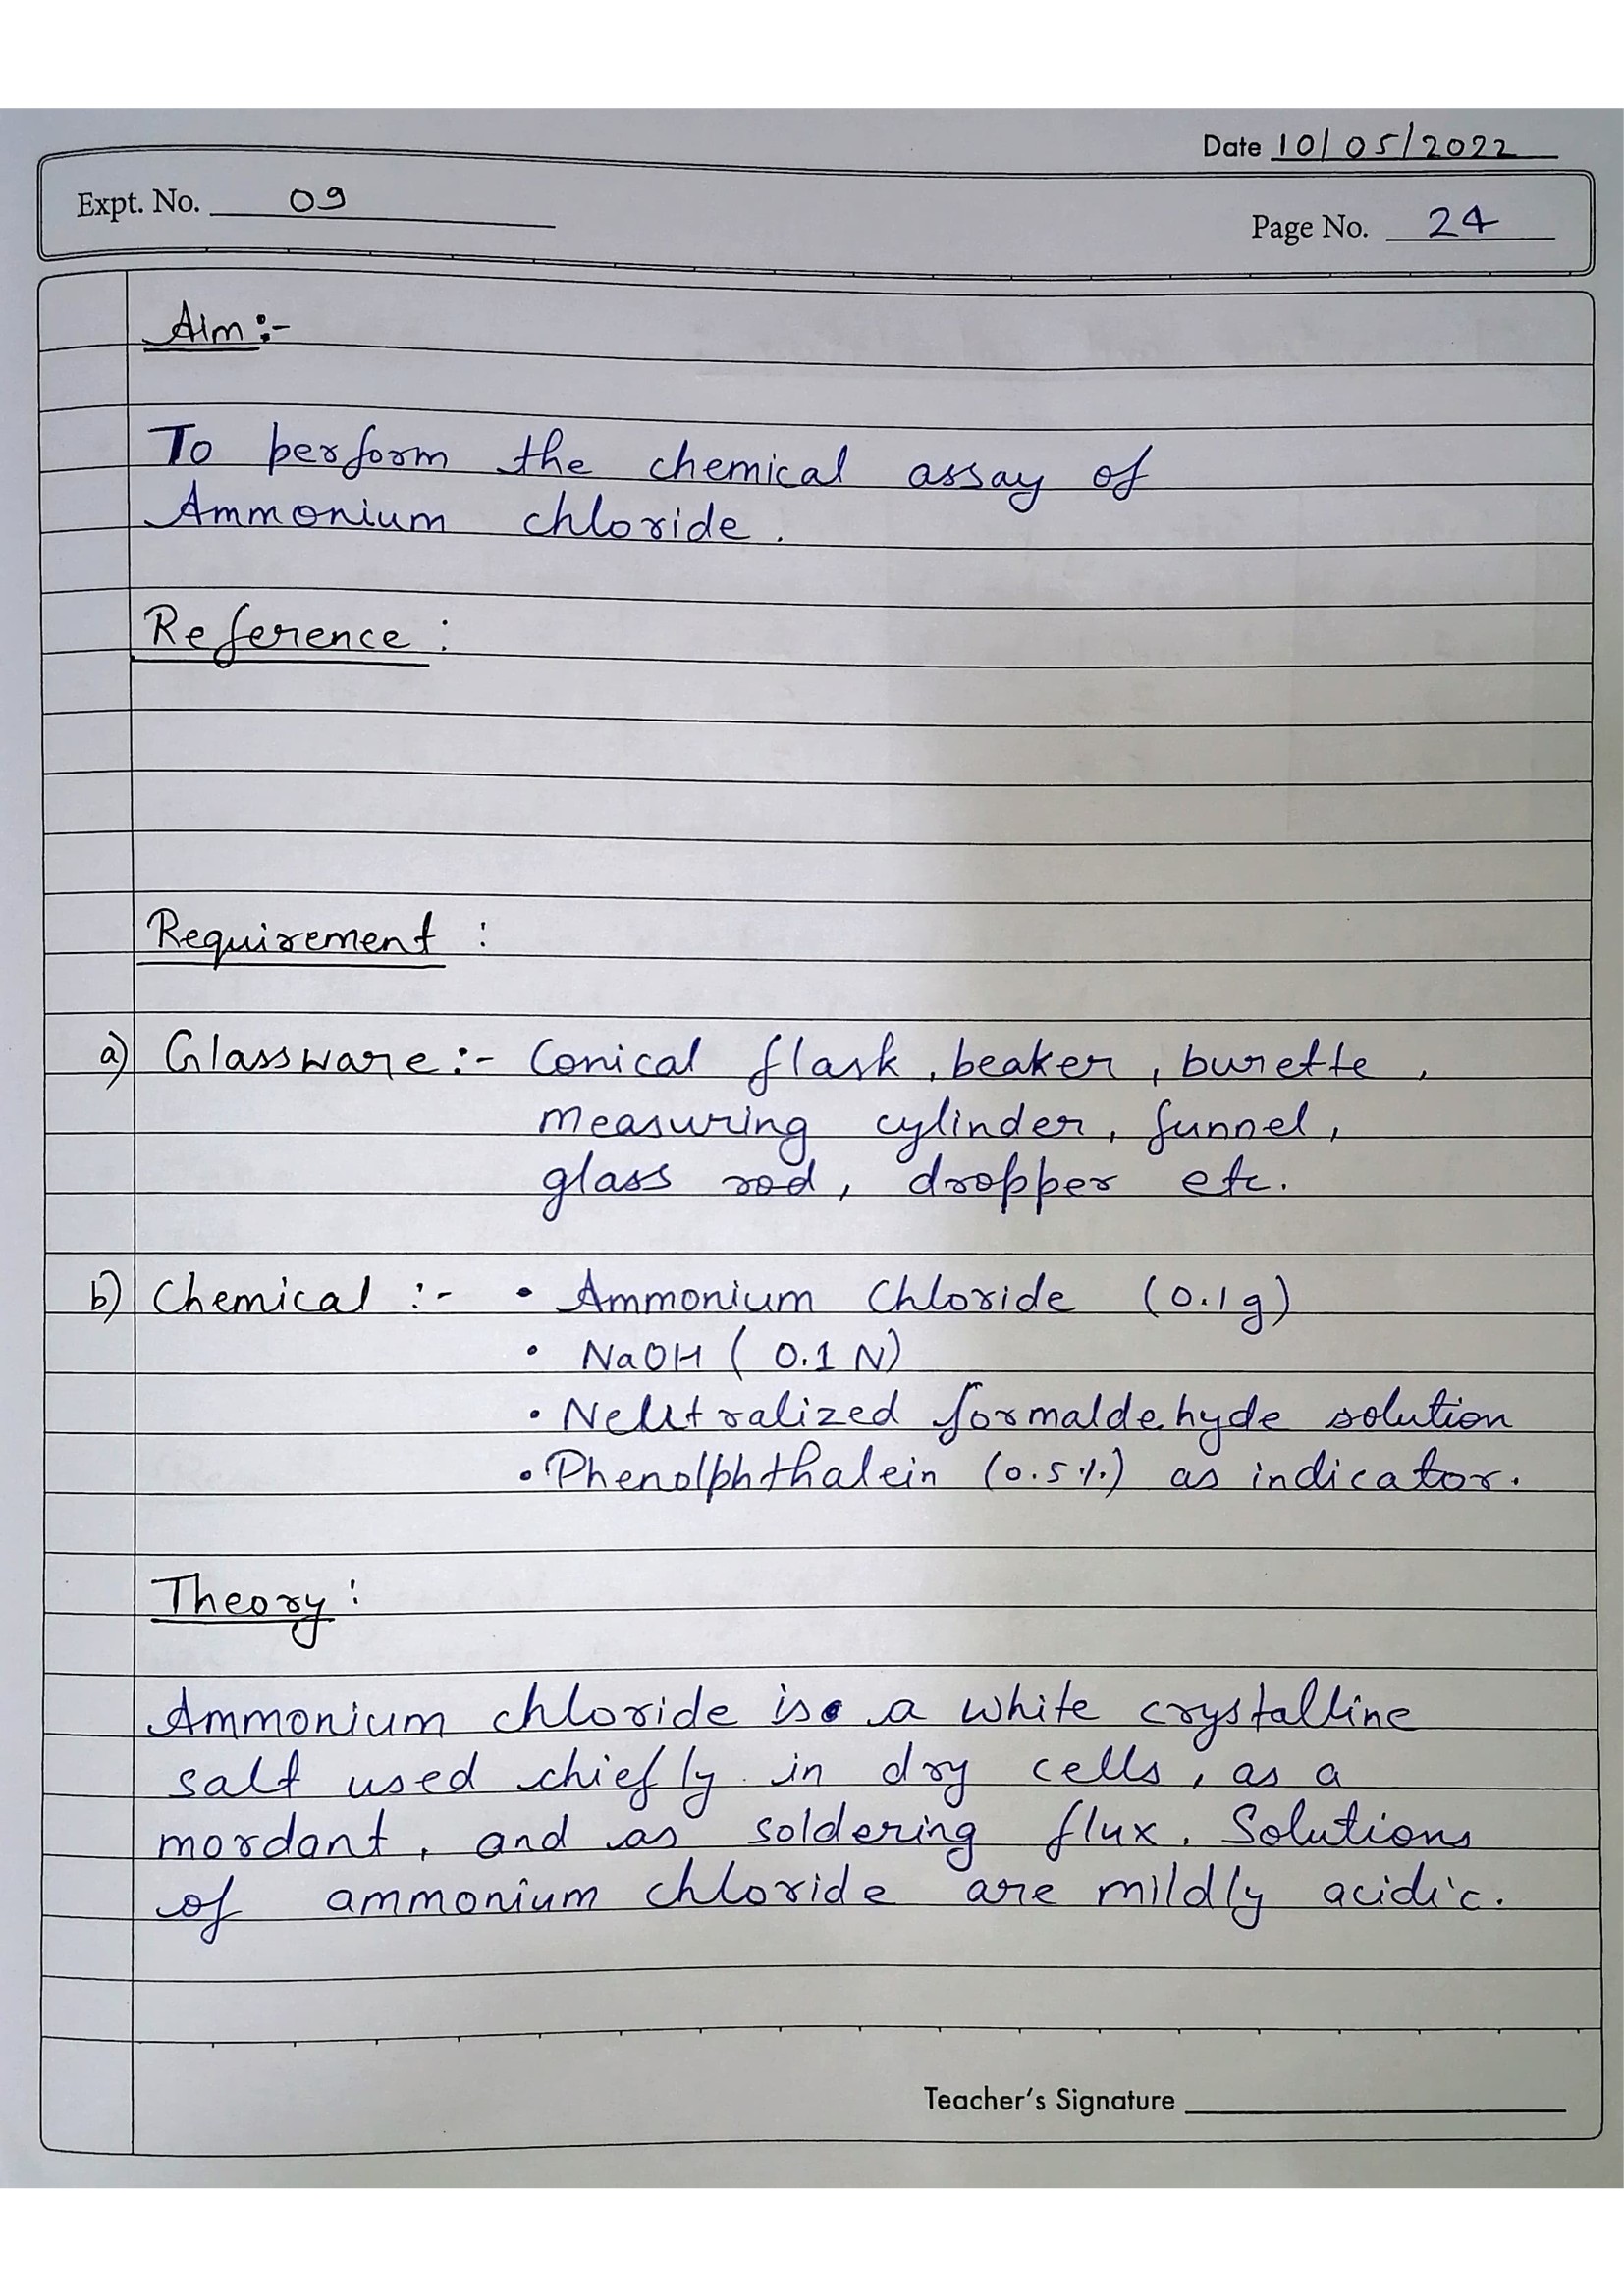 Date 10/05/2022
Expt. No. 09
Page No. 24
Aim :-
To perform the chemical assay of
Ammonium chloride.
Reference :
Requirement :
a) Glassware :- Conical flask, beaker, burette,
measuring cylinder, funnel,
glass rod, dropper etc.
b) Chemical :- • Ammonium Chloride (0.1g)
• NaOH (0.1 N)
• Neutralized formaldehyde solution
• Phenolphthalein (0.5%) as indicator.
Theory :
Ammonium chloride is a white crystalline
salt used chiefly in dry cells, as a
mordant, and as soldering flux. Solutions
of ammonium chloride are mildly acidic.
Teacher's Signature